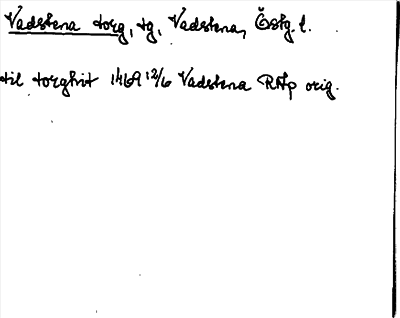 Vadstena torg, tg, Vadstena, Östg. l.
til torghit 1469 12/6 Vadstena RAp orig.